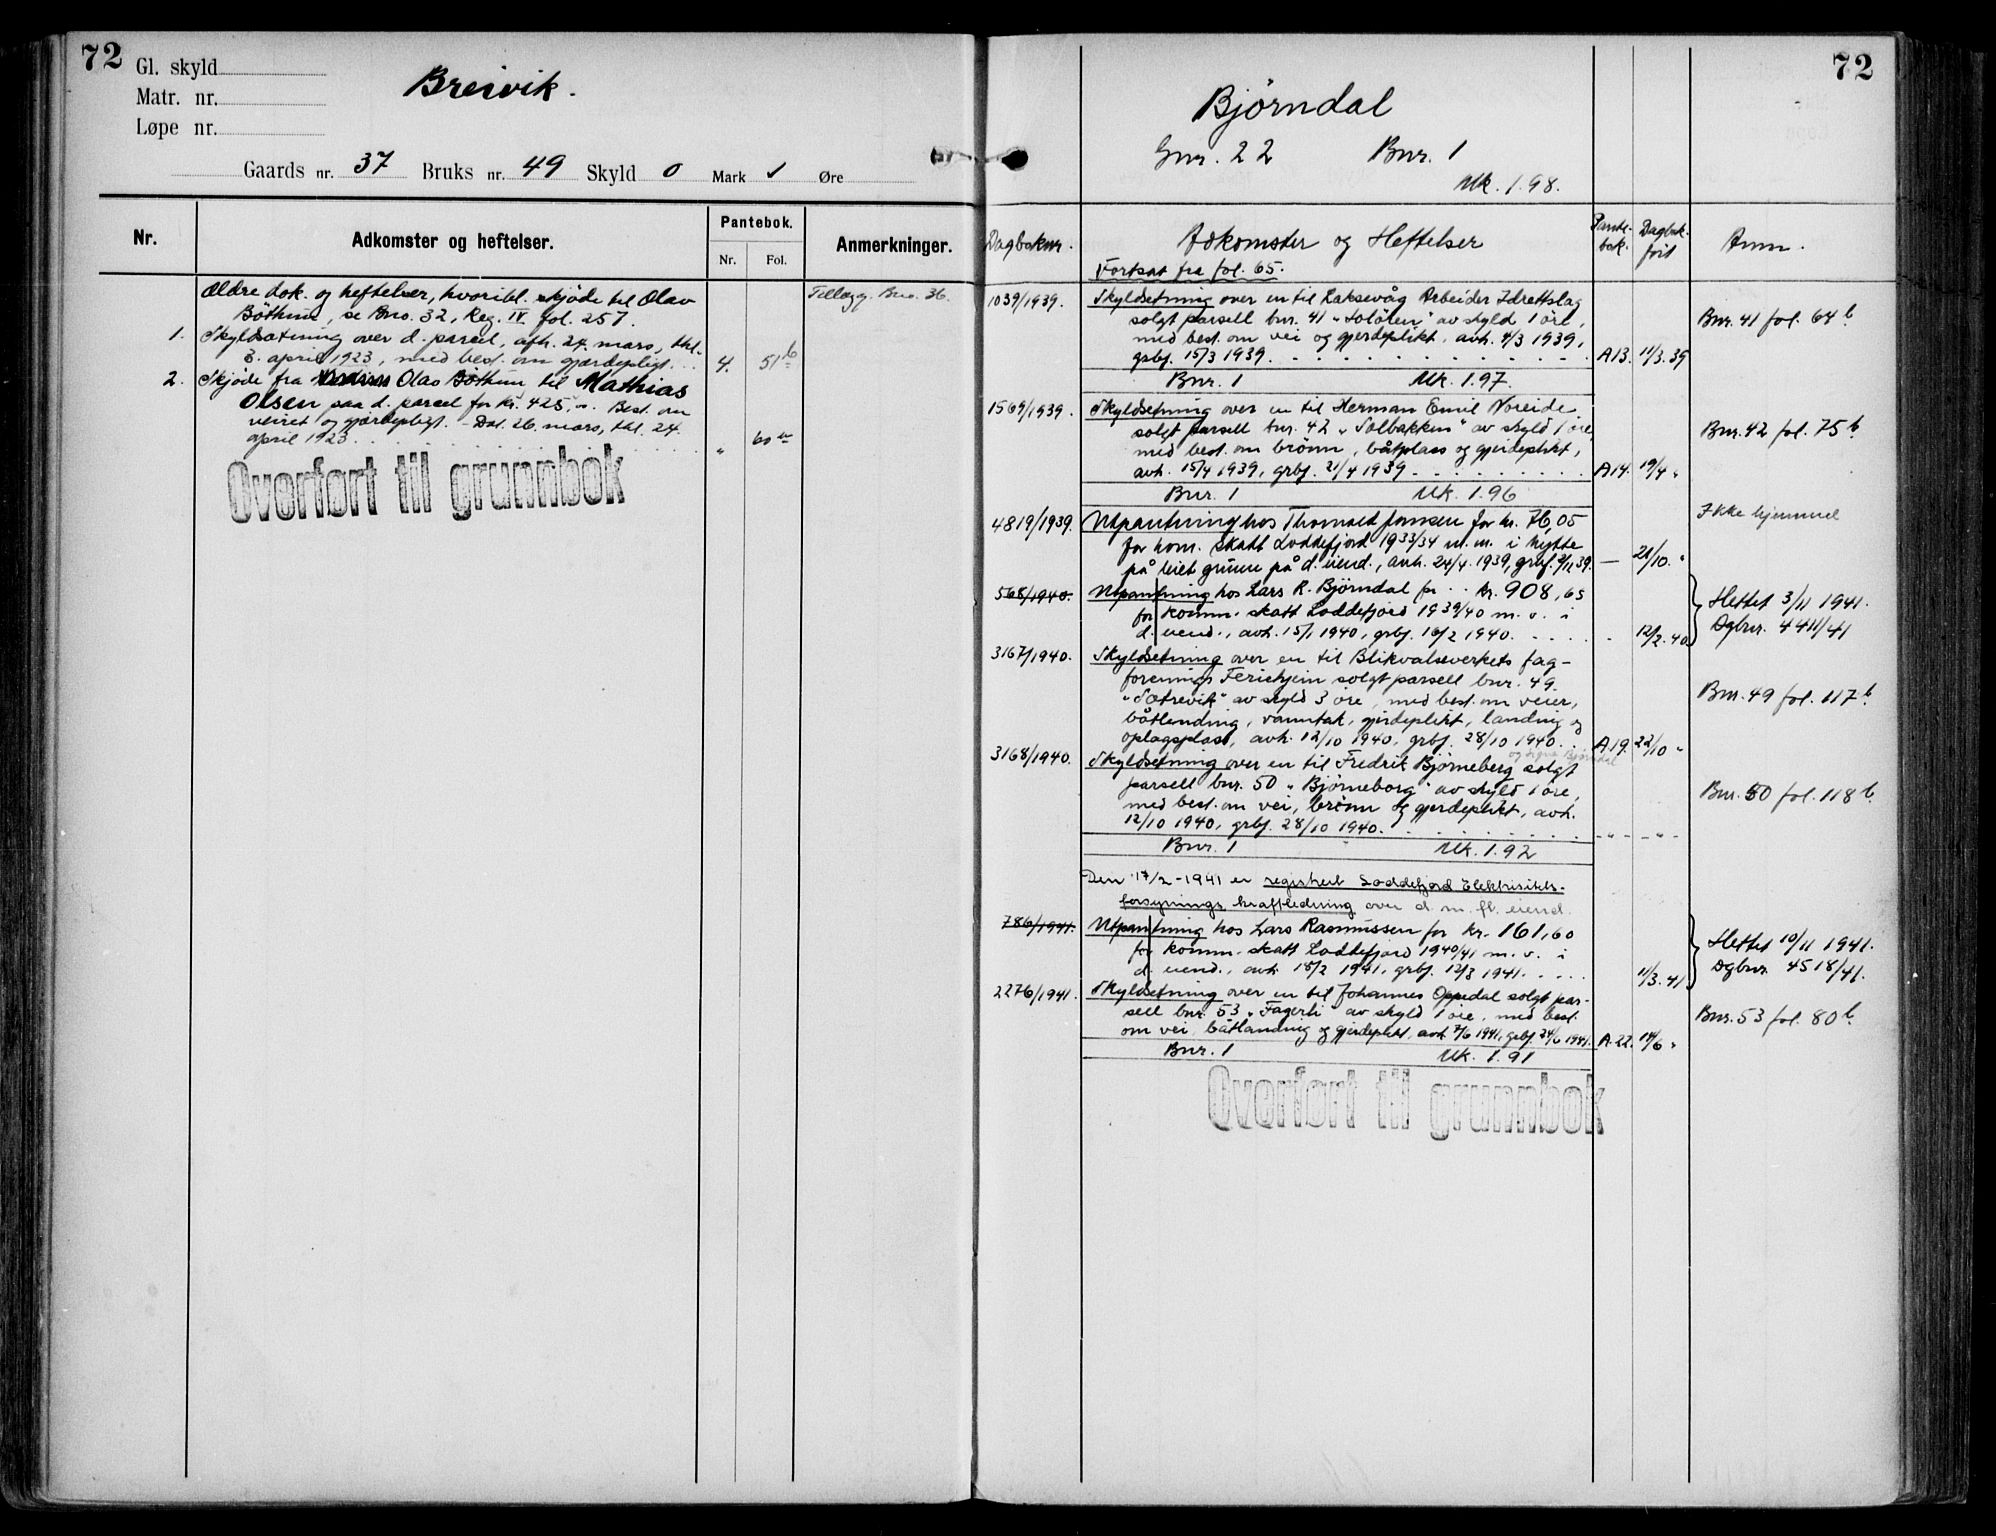 72
Gl. skyld
Matr. nr.
Løpe nr.
Breivik.
Gaards nr. 37 Bruks nr. 49 Skyld 0 Mark 1 Øre
Nr.
Adkomster og heftelser.
Pantebok.
Nr. Fol.
Anmerkninger.
Ældre dok. og heftelser, hvoribl. skjøde til Olav
Böthun, se Bno. 32, Reg. IV fol. 257.
Tillegg. Bno. 36.
1. Skyldsætning over d. parcel, afh. 24. mars, thl.
3. april 1923, med best. om gjærdepligt. . . 4. 51 b
2. Skjøde fra Olav Böthun til Mathias
Olsen paa d. parcel for kr. 425,-. Best. om
veiret og gjærdepligt. - Dat. 26. mars, thl. 24.
april 1923 . . . . . . . . . . " 60
Overført til grunnbok
72
Bjørndal
Gnr. 22 Bnr. 1
Mk. 1.98.
Dagboknr.
Adkomster og Heftelser
Pante-
bok.
Dagbok-
ført
Anm.
Fortsat fra fol. 65.
1039/1939. Skyldsetning over en til Laksevåg Arbeider Idrettslag
solgt parsell bnr. 41 "Soløren" av skyld 1 öre,
med best. om vei og gjerdeplikt, avh. 4/3 1939,
grbf. 15/3 1939. . . . . . . . . A13. 11/3.39
Bnr. 41 fol. 64 b
Bnr. 1 Mk. 1.97.
1569/1939. Skyldsetning over en til Herman Emil Noreide
solgt parsell bnr. 42 "Solbakken" av skyld 1 öre,
med best. om brönn, båtplass og gjerdeplikt,
avh. 15/4 1939, grbf. 21/4 1939. . . . . . . . . A14. 19/4 "
Bnr. 42 fol. 75 b.
Bnr. 1 Mk. 1.96
4819/1939. Utpantning hos Thorvald Jonsen for kr. 76,05
for kom. skatt Loddefjord 1933/34 m. m. i hytte
på leiet grunn på d. eiend., avh. 24/4. 1939, grbf. 2/11 39. — 21/10. "
Ikke hjemmel
568/1940. Utpantning hos Lars R. Bjørndal for . . kr. 908,65
for komm. skatt Loddefjord 1939/40 m. v. i
d. eiend., avh. 15/1 1940, grbf. 16/2 1940. . . . . . . 12/2. 40
Slettet 3/11 1941.
Dgbnr. 4411/41
3167/1940. Skyldsetning over en til Blikvalseverkets fag-
forenings Feriehjem solgt parsell bnr. 49
"Sætrevik" av skyld 3 öre, med best. om veier,
båtlending, vanntak, gjerdeplikt, landing og
oplagsplass, avh. 12/10 1940, grbf. 28/10 1940. . . A19. 22/10 "
Bnr. 49 fol. 117 b
og Signe Bjørndal
3168/1940. Skyldsetning over en til Fredrik Bjørneberg solgt
parsell bnr. 50 "Bjørneborg" av skyld 1 öre,
med best. om vei, brönn og gjerdeplikt, avh.
12/10 1940, grbf. 28/10 1940. . . . . . . . . - " - - " -
Bnr. 50 fol. 118 b.
Bnr. 1 Mk. 1.92
Den 17/2 - 1941 er registrert Loddefjord Elektrisitets-
forsynings kraftledning over d. m. fl. eiend.
786/1941. Utpantning hos Lars Rasmussen for kr. 161,60
for komm. skatt Loddefjord 1940/41 m. v. i
d. eiend., avh. 18/2 1941, grbf. 12/3 1941. . . . . 11/3. 41
Slettet 10/11 1941.
Dgbnr. 4518/41.
2276/1941. Skyldsetning over en til Johannes Oppedal solgt par-
sell bnr. 53 "Fagerli" av skyld 1 öre, med best.
om vei, båtlanding og gjerdeplikt, avh. 7/6 1941, grbf. 24/6 1941. A.22. 14/6 "
Bnr. 53 fol. 80 b.
Bnr. 1 Mk. 1.91
Overført til grunnbok